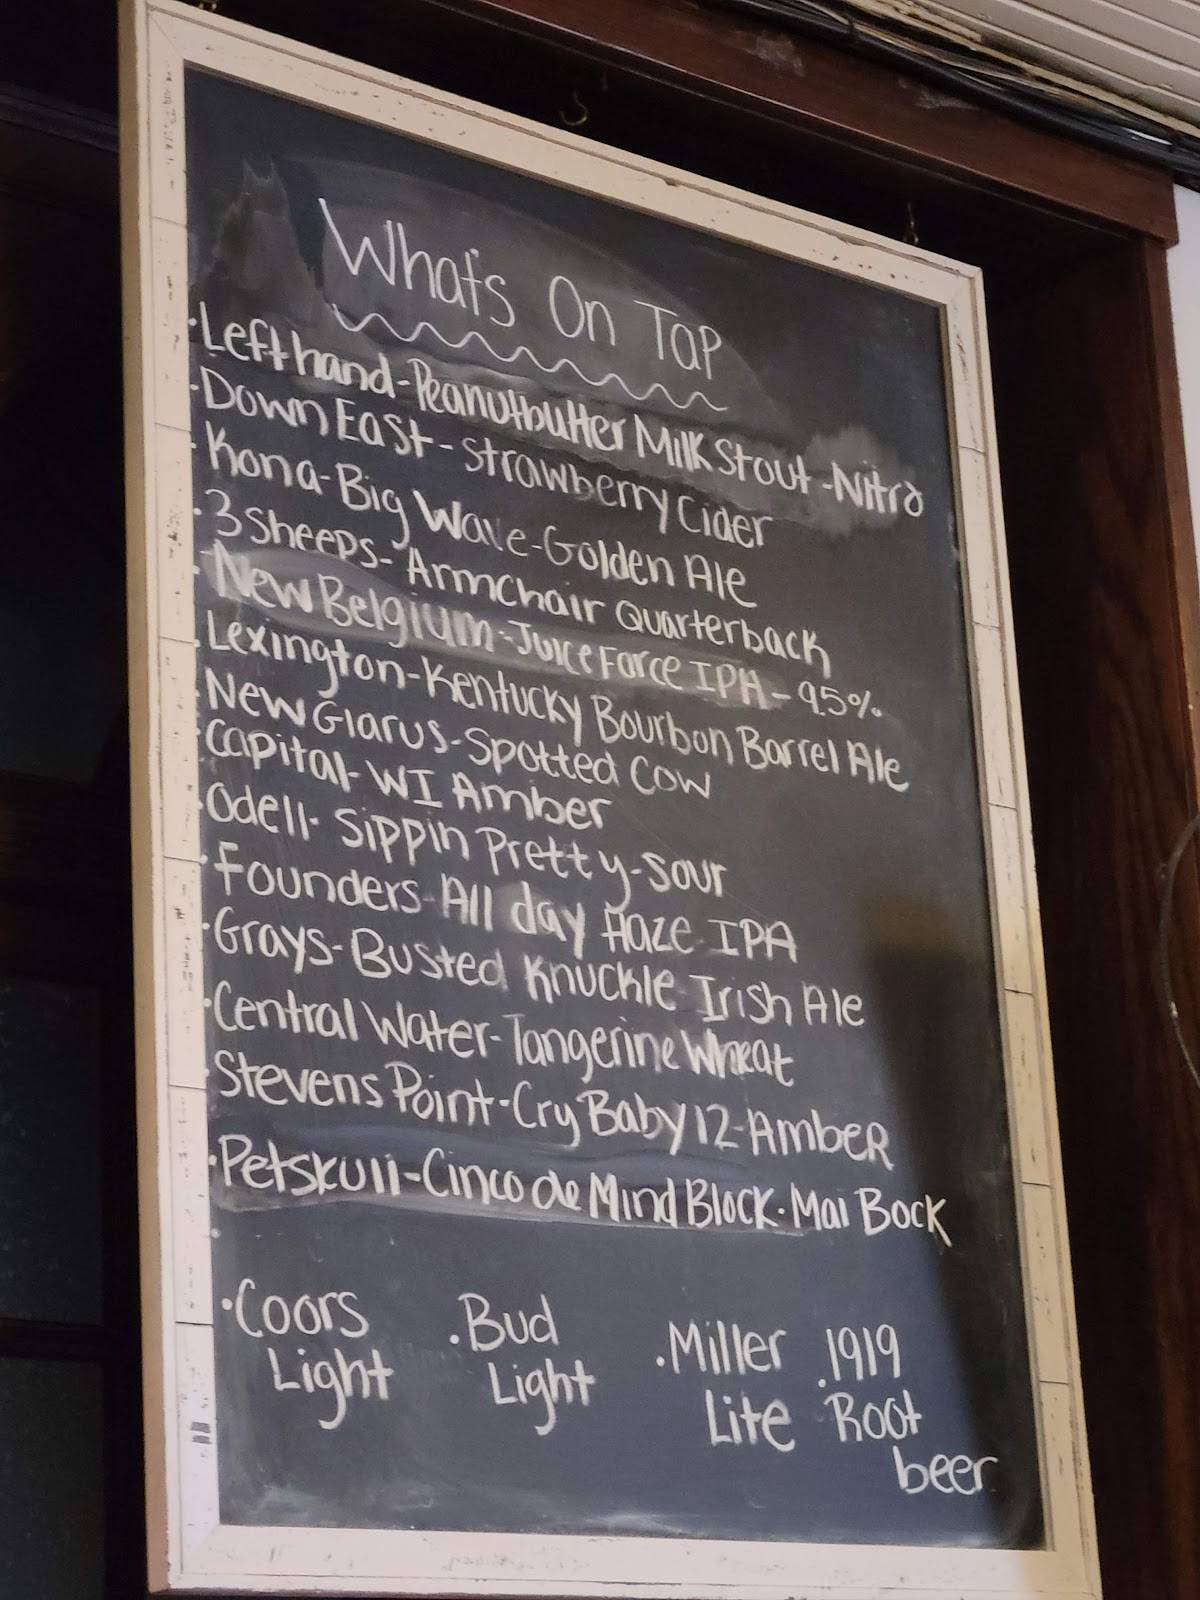 What's On Tap
·Left hand-Peanutbutter Milk Stout-Nitro
·Down East-Strawberry Cider
·Kona-Big Wave-Golden Ale
·3 Sheeps-Armchair Quarterback
·New Belgium-Juice Force IPA-9.5%
·Lexington-Kentucky Bourbon Barrel Ale
·New Glarus-Spotted Cow
·Capital-WI Amber
·Odell-Sippin Pretty-Sour
·Founders-All day Haze-IPA
·Grays-Busted Knuckle Irish Ale
·Central Water-Tangerine Wheat
·Stevens Point-Cry Baby 12-Amber
·Petskull-Cinco de Mind Block-Mai Bock
·
·Coors Light
·Bud Light
·Miller Lite
·1919 Root beer